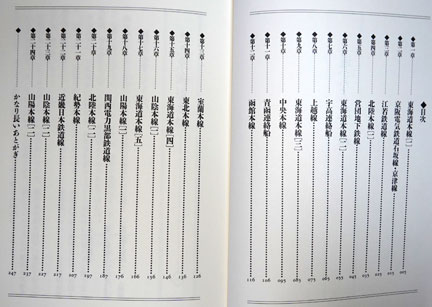 ◆目次
◆第一章 東海道本線[一] 007
◆第二章 京阪電気鉄道石坂線・京津線 015
◆第三章 江若鉄道線 025
◆第四章 北陸本線[一] 035
◆第五章 営団地下鉄線 045
◆第六章 東海道本線[二] 055
◆第七章 宇高連絡船 065
◆第八章 上越線 075
◆第九章 東海道本線[三] 085
◆第十章 中央本線 095
◆第十一章 青函連絡船 106
◆第十二章 函館本線 116
◆第十三章 室蘭本線 126
◆第十四章 東北本線 136
◆第十五章 東海道本線[四] 146
◆第十六章 山陰本線[一] 156
◆第十七章 東海道本線[五] 166
◆第十八章 山陽本線[一] 176
◆第十九章 関西電力黒部鉄道線 187
◆第二十章 北陸本線[二] 197
◆第二十一章 紀勢本線 207
◆第二十二章 近畿日本鉄道線 217
◆第二十三章 山陰本線[二] 227
◆第二十四章 山陽本線[二] 237
◆ かなり長いあとがき 247